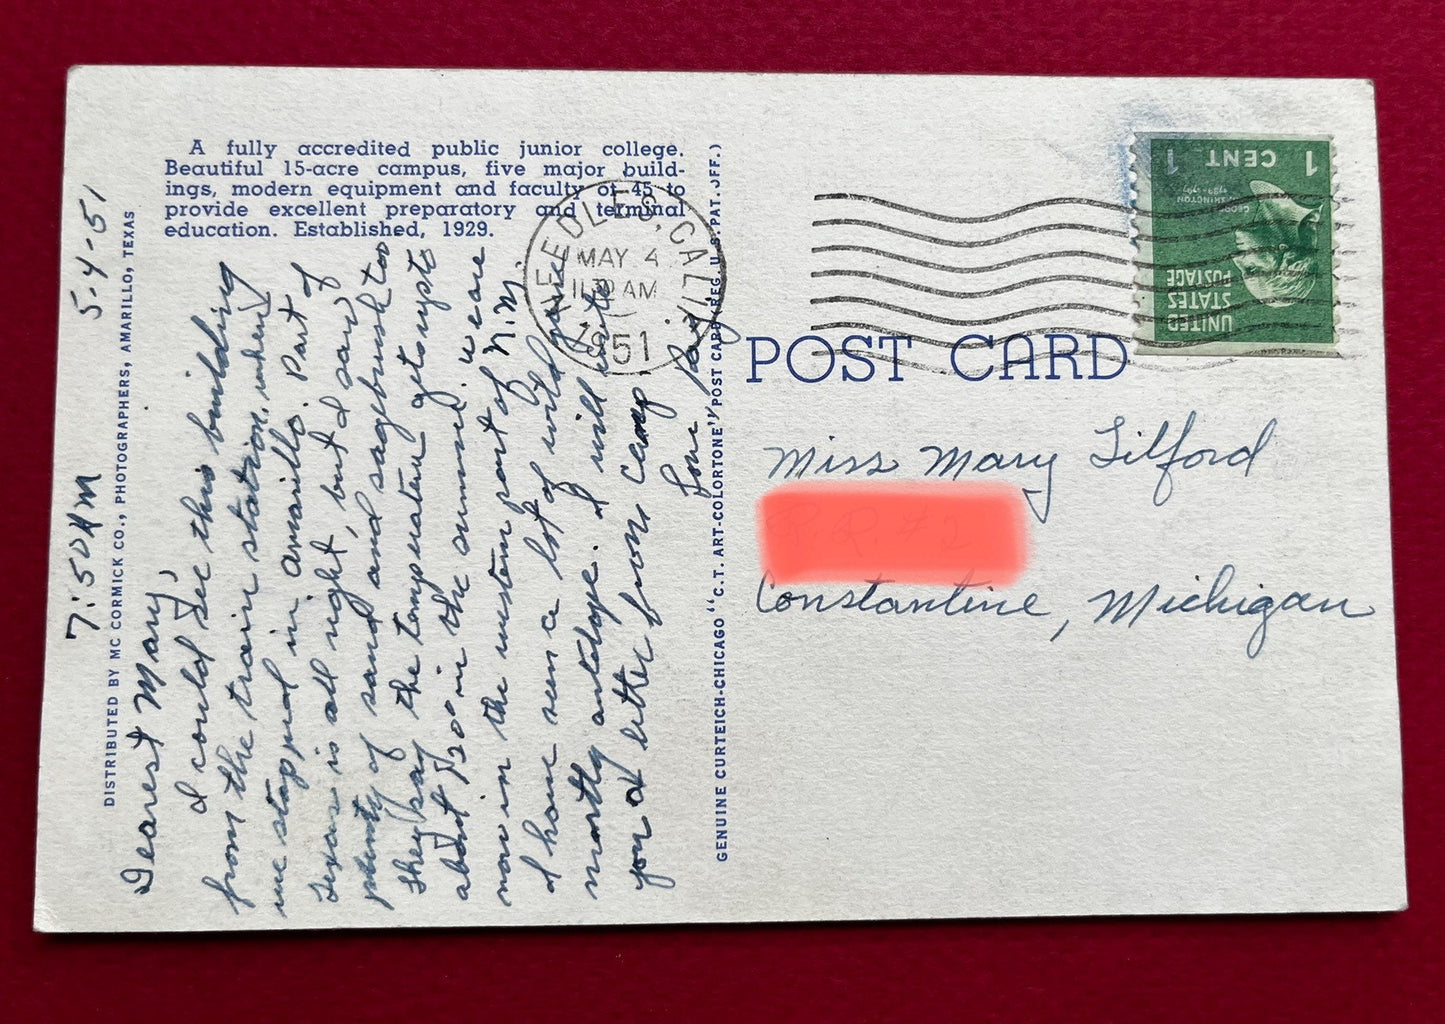 A fully accredited public junior college.
Beautiful 15-acre campus, five major build-
ings, modern equipment and faculty of 45 to
provide excellent preparatory and terminal
education. Established, 1929.
DISTRIBUTED BY MC CORMICK CO., PHOTOGRAPHERS, AMARILLO, TEXAS
7:50 AM 5-4-51
Dearest Mary,
I could see this building
from the train station when
we stopped in Amarillo. Part of
Texas is all right, but I saw
plenty of sand and sagebrush too
They say the temperature gets up to
about 120 in the summer. We are
now in the western part of N.M.
I have seen a lot of wild
mostly antelope. I will write
you a letter from camp
Love
GENUINE CURTEICH-CHICAGO "C.T. ART-COLORTONE" POST CARD (REG. U.S. PAT. OFF.)
NEEDLES, CALIF.
MAY 4
11 AM
1951
POST CARD
UNITED
STATES
POSTAGE
GEORGE
WASHINGTON
1789-1797
1 CENT 1
Miss Mary Tilford
R.R. #2
Constantine, Michigan